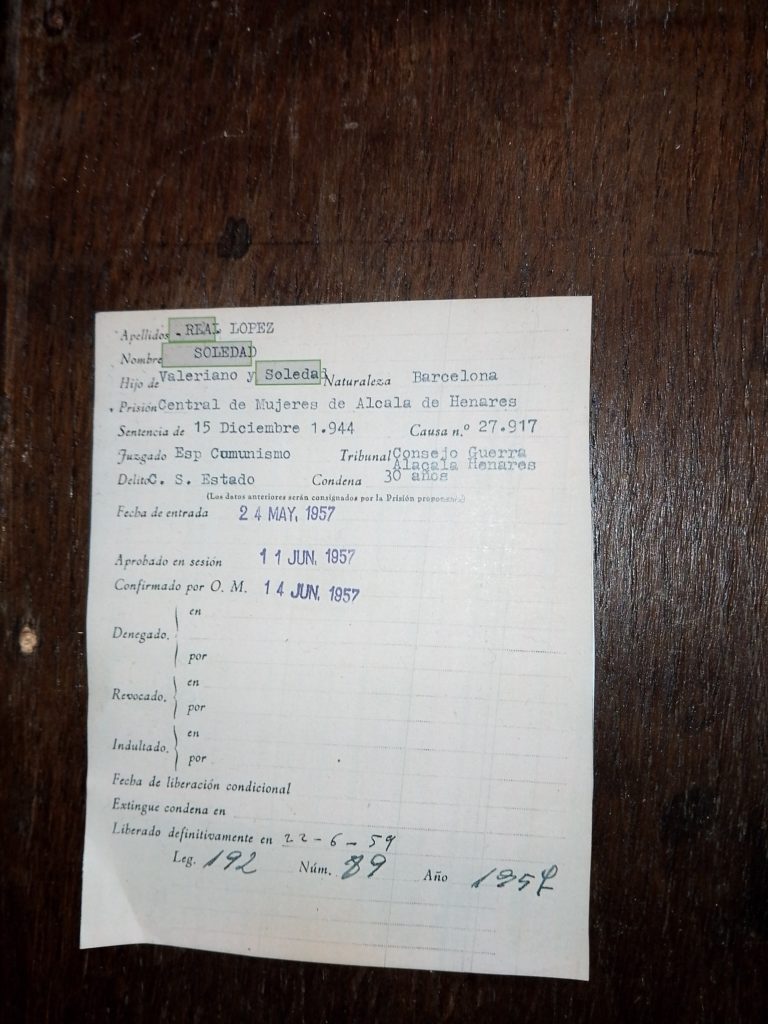 Apellidos . REAL LOPEZ
Nombre SOLEDAD
Hijo de Valeriano y Soledad Naturaleza Barcelona
Prisión Central de Mujeres de Alcala de Henares
Sentencia de 15 Diciembre 1.944 Causa n.º 27.917
Juzgado Esp Comunismo Tribunal Consejo Guerra
Alacala Henares
Delito C. S. Estado Condena 30 años
(Los datos anteriores serán consignados por la Prisión proponente)
Fecha de entrada 24 MAY. 1957
Aprobado en sesión 11 JUN. 1957
Confirmado por O. M. 14 JUN. 1957
Denegado. en
por
Revocado. en
por
Indultado. en
por
Fecha de liberación condicional
Extingue condena en
Liberado definitivamente en 22-6-59
Leg. 192 Núm. 89 Año 1957